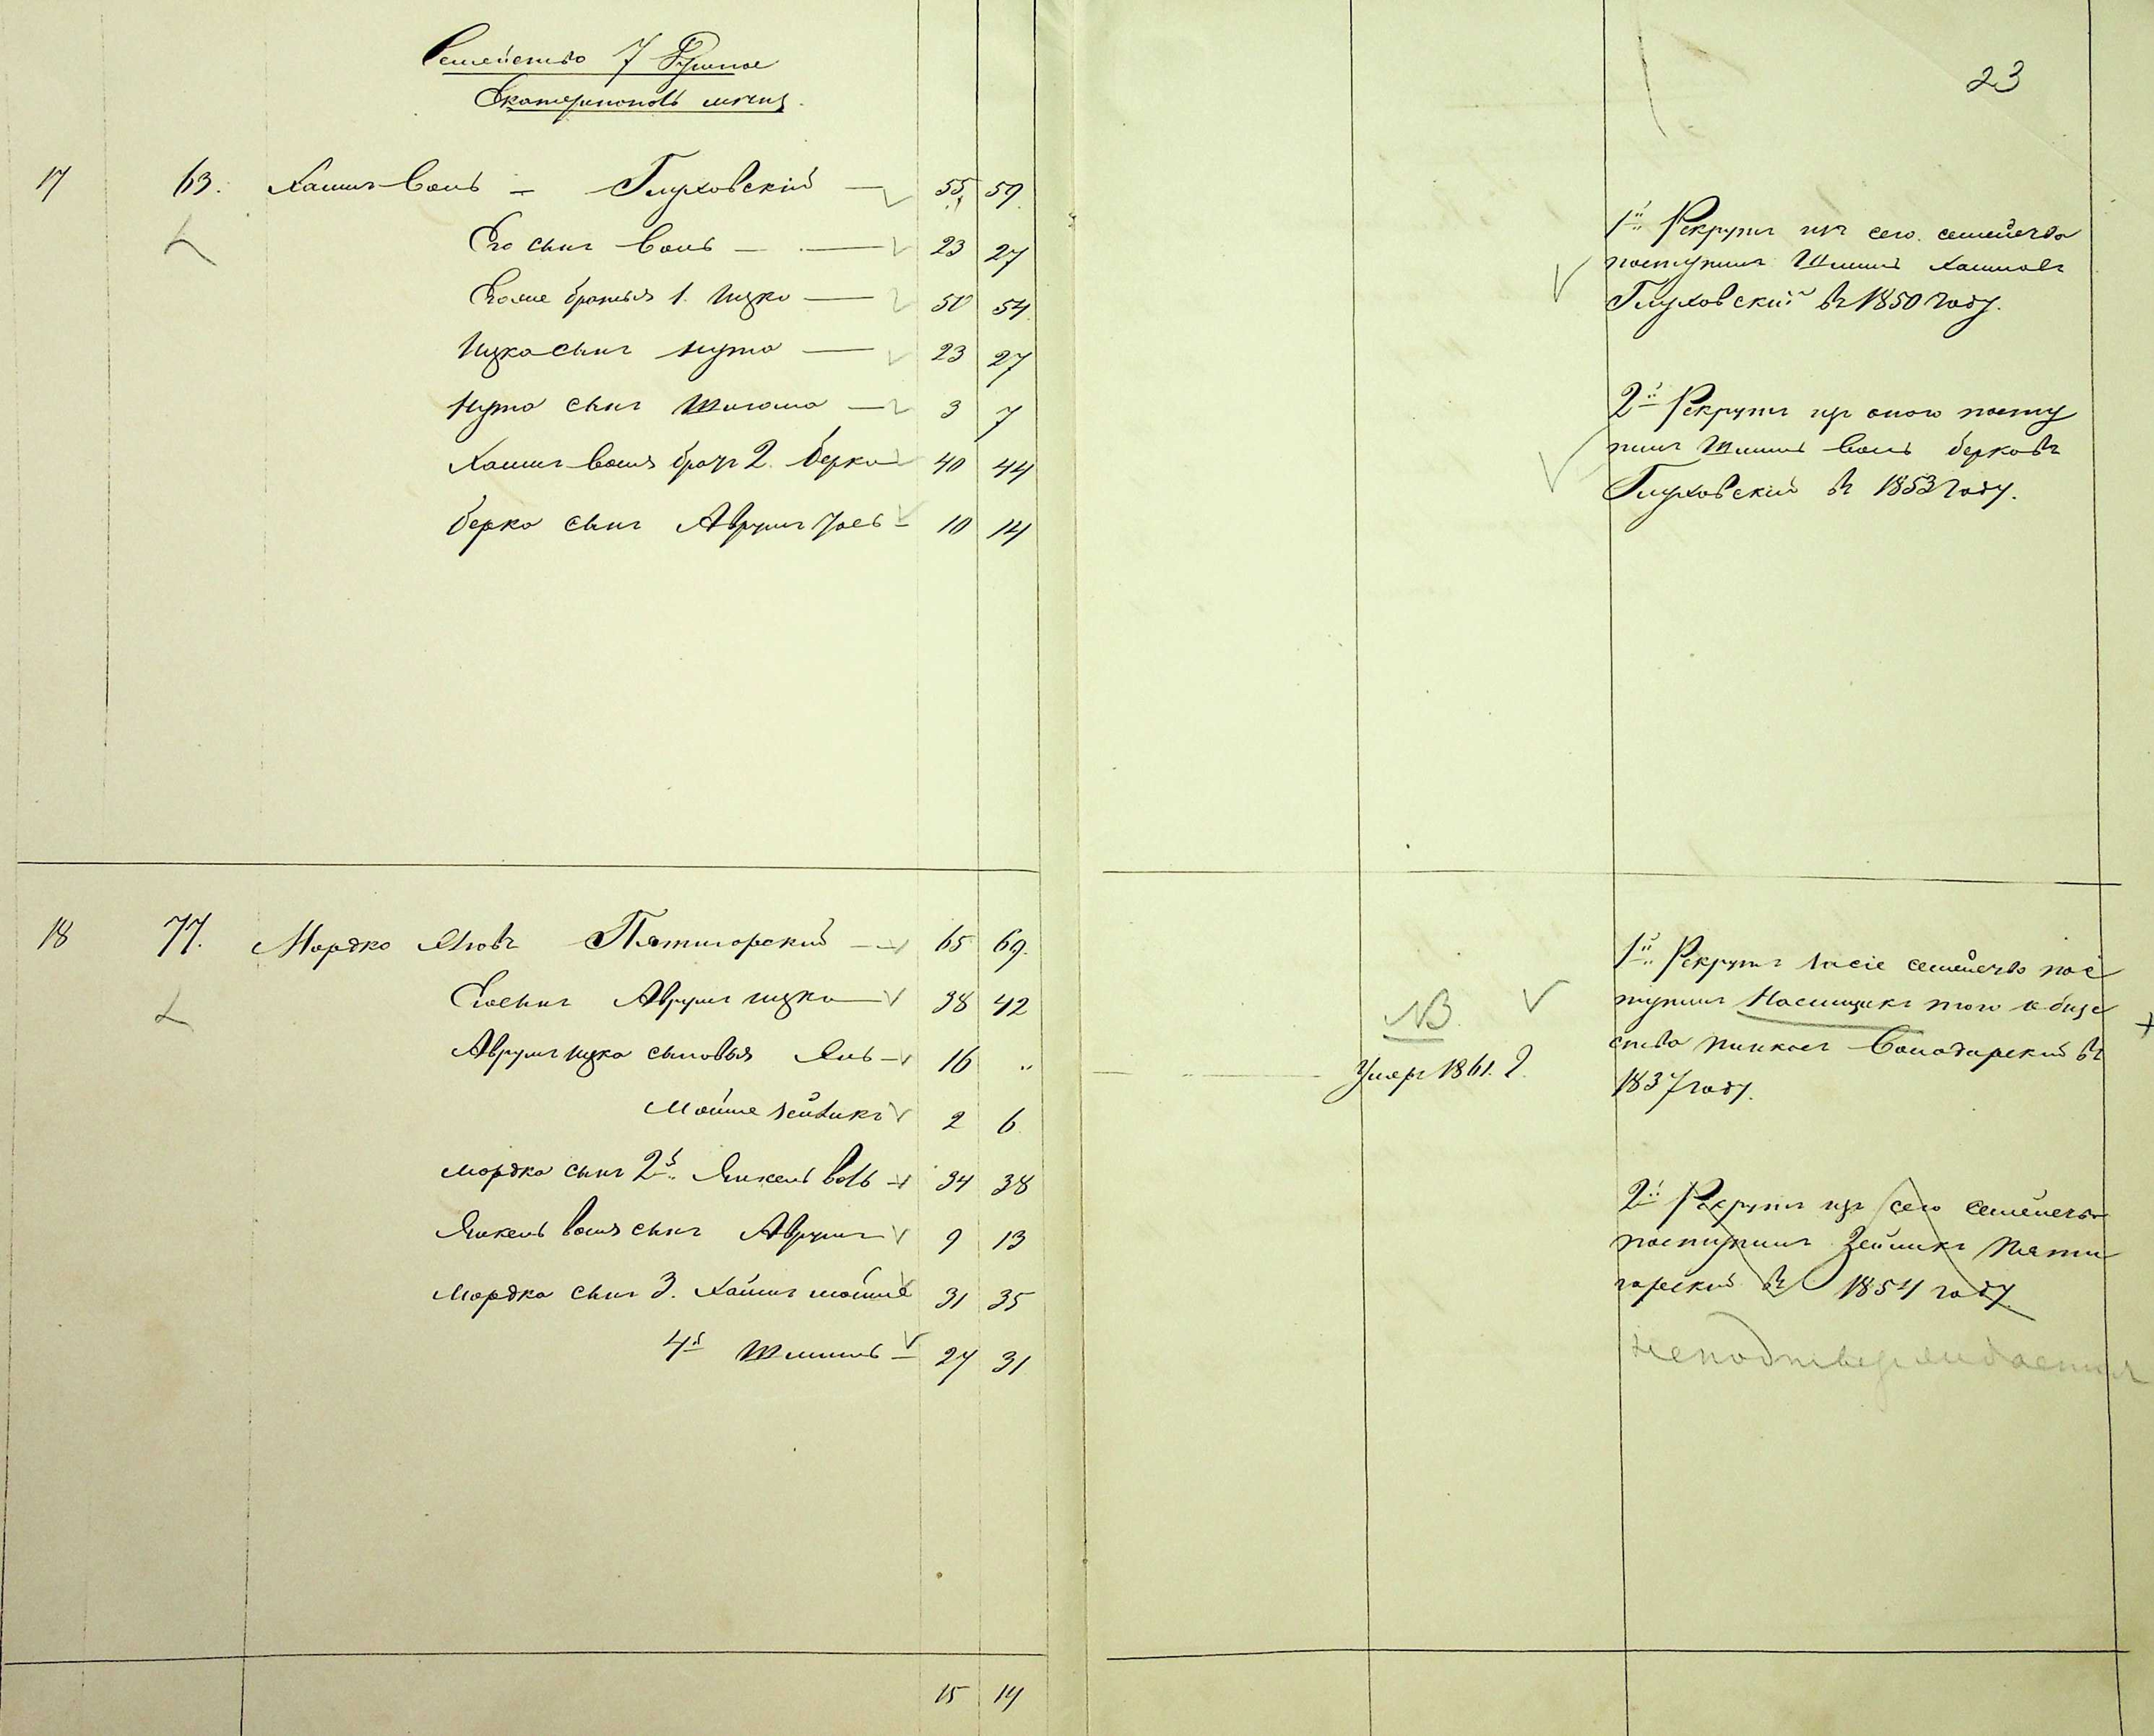 Семейство 7 душное
Екатериноп. мѣщ.
23
17 63. Хаимъ Воль — Глуховскій — 55 59
Его сынъ Воль — 23 27
Его же братья 1. Ицко — 50 54
Ицка сынъ Нута — 23 27
Нута сынъ — 3 7
Хаимъ Воля братъ 2. Берко 40 44
Берко сынъ Аврумъ — 10 14
1й Рекрутъ изъ сего семейства
поступилъ Шмиль Хаимовъ
Глуховский въ 1850 году.
2й Рекрутъ изъ оного посту
пилъ Шмиль Воль Берковъ
Глуховский въ 1853 году.
18 77. Мордко Пятигорский — 65 69.
Его сынъ Аврумъ Ицко — 38 42
Аврумъ Ицка сыновья — 16 "
Мойше Зейликъ 2 6
Мордка сынъ 2й Янкель Воль 34 38
Янкель Воля сынъ Аврумъ 9 13
Мордка сынъ 3. Хаимъ Мойше 31 35
4й Шмиль — 27 31
NB.
Умеръ 1861. г.
1й Рекрутъ за сіе семейство пос
тупилъ Наемщикъ того обще
ства Пинкасъ въ
1837 году.
2й Рекрутъ изъ сего семейства
поступилъ Зейликъ Пяти
горский въ 1854 году.
неподтверждается
15 14